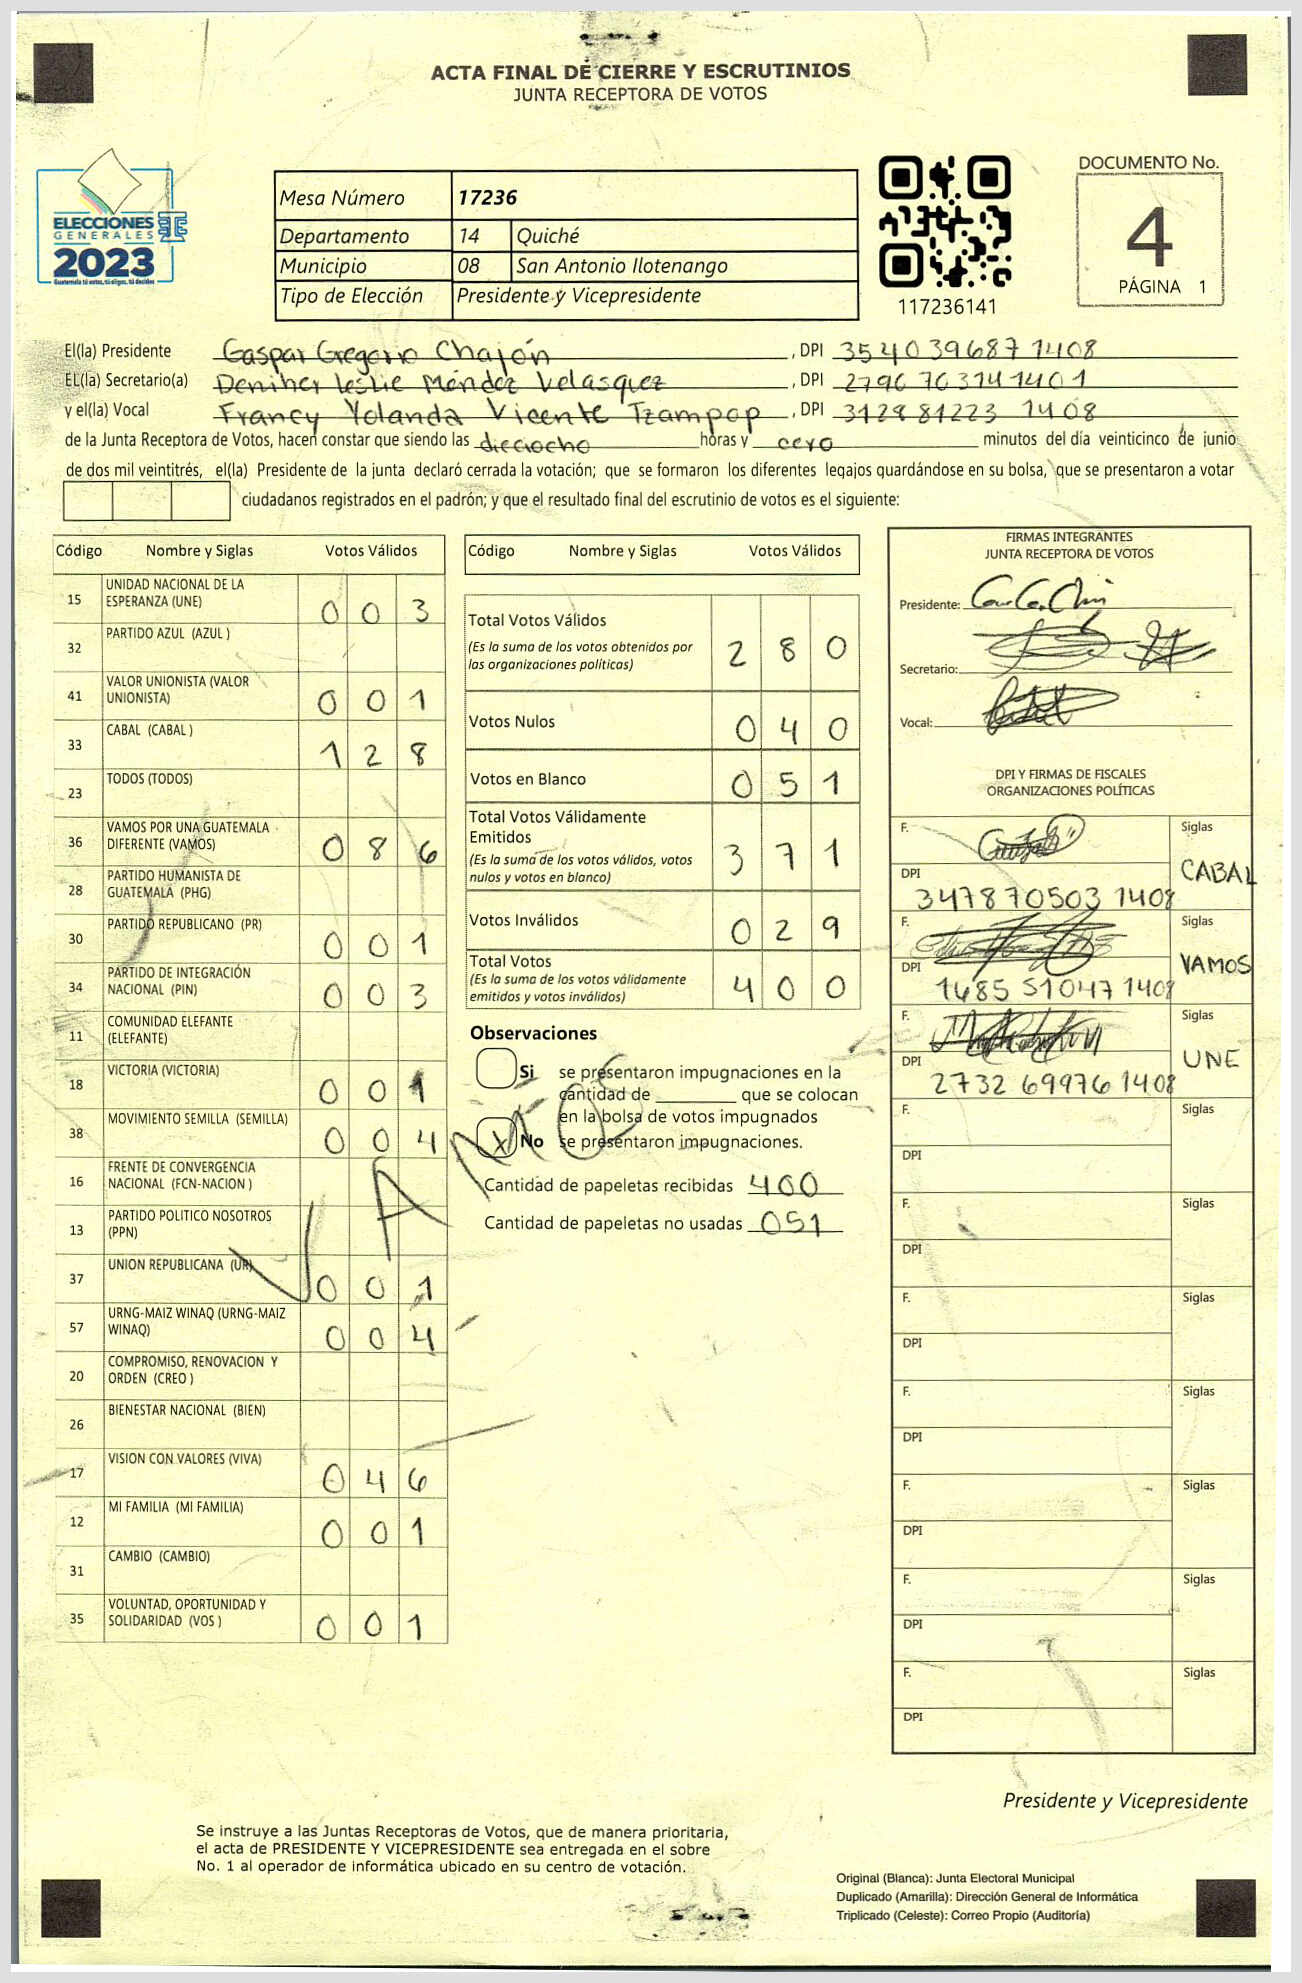 ACTA FINAL DE CIERRE Y ESCRUTINIOS
JUNTA RECEPTORA DE VOTOS
ELECCIONES
GENERALES
2023
Guatemala tú votas, tú eliges, tú decides
Mesa Número 17236
Departamento 14 Quiché
Municipio 08 San Antonio Ilotenango
Tipo de Elección Presidente y Vicepresidente
117236141
DOCUMENTO No.
4
PÁGINA 1
El(la) Presidente Gaspar Gregorio Chajón , DPI 3540396871408
EL(la) Secretario(a) Deniher Leslie Méndez Velasquez , DPI 2790703141401
y el(la) Vocal Francy Yolanda Vicente Tzampop , DPI 312881223 1408
de la Junta Receptora de Votos, hacen constar que siendo las dieciocho horas y cero minutos del día veinticinco de junio
de dos mil veintitrés, el(la) Presidente de la junta declaró cerrada la votación; que se formaron los diferentes legajos guardándose en su bolsa, que se presentaron a votar
ciudadanos registrados en el padrón; y que el resultado final del escrutinio de votos es el siguiente:
Código Nombre y Siglas Votos Válidos
15 UNIDAD NACIONAL DE LA
ESPERANZA (UNE) 0 0 3
32 PARTIDO AZUL (AZUL )
41 VALOR UNIONISTA (VALOR
UNIONISTA) 0 0 1
33 CABAL (CABAL ) 1 2 8
23 TODOS (TODOS)
36 VAMOS POR UNA GUATEMALA
DIFERENTE (VAMOS) 0 8 6
28 PARTIDO HUMANISTA DE
GUATEMALA (PHG)
30 PARTIDO REPUBLICANO (PR) 0 0 1
34 PARTIDO DE INTEGRACIÓN
NACIONAL (PIN) 0 0 3
11 COMUNIDAD ELEFANTE
(ELEFANTE)
18 VICTORIA (VICTORIA) 0 0 1
38 MOVIMIENTO SEMILLA (SEMILLA) 0 0 4
16 FRENTE DE CONVERGENCIA
NACIONAL (FCN-NACION )
13 PARTIDO POLITICO NOSOTROS
(PPN)
37 UNION REPUBLICANA (UR) 0 0 1
57 URNG-MAIZ WINAQ (URNG-MAIZ
WINAQ) 0 0 4
20 COMPROMISO, RENOVACION Y
ORDEN (CREO )
26 BIENESTAR NACIONAL (BIEN)
17 VISION CON VALORES (VIVA) 0 4 6
12 MI FAMILIA (MI FAMILIA) 0 0 1
31 CAMBIO (CAMBIO)
35 VOLUNTAD, OPORTUNIDAD Y
SOLIDARIDAD (VOS ) 0 0 1
VAMOS
Código Nombre y Siglas Votos Válidos
Total Votos Válidos
(Es la suma de los votos obtenidos por
las organizaciones políticas) 2 8 0
Votos Nulos 0 4 0
Votos en Blanco 0 5 1
Total Votos Válidamente
Emitidos
(Es la suma de los votos válidos, votos
nulos y votos en blanco) 3 7 1
Votos Inválidos 0 2 9
Total Votos
(Es la suma de los votos válidamente
emitidos y votos inválidos) 4 0 0
Observaciones
Si se presentaron impugnaciones en la
cantidad de ________ que se colocan
en la bolsa de votos impugnados
X No se presentaron impugnaciones.
Cantidad de papeletas recibidas 400
Cantidad de papeletas no usadas 051
FIRMAS INTEGRANTES
JUNTA RECEPTORA DE VOTOS
Presidente:
Secretario:
Vocal:
DPI Y FIRMAS DE FISCALES
ORGANIZACIONES POLÍTICAS
F. Siglas
CABAL
DPI
347870503 1408
F. Siglas
VAMOS
DPI
1685 51047 1408
F. Siglas
UNE
DPI
2732 69976 1408
F. Siglas
DPI
F. Siglas
DPI
F. Siglas
DPI
F. Siglas
DPI
F. Siglas
DPI
F. Siglas
DPI
F. Siglas
DPI
Presidente y Vicepresidente
Se instruye a las Juntas Receptoras de Votos, que de manera prioritaria,
el acta de PRESIDENTE Y VICEPRESIDENTE sea entregada en el sobre
No. 1 al operador de informática ubicado en su centro de votación.
Original (Blanca): Junta Electoral Municipal
Duplicado (Amarilla): Dirección General de Informática
Triplicado (Celeste): Correo Propio (Auditoría)